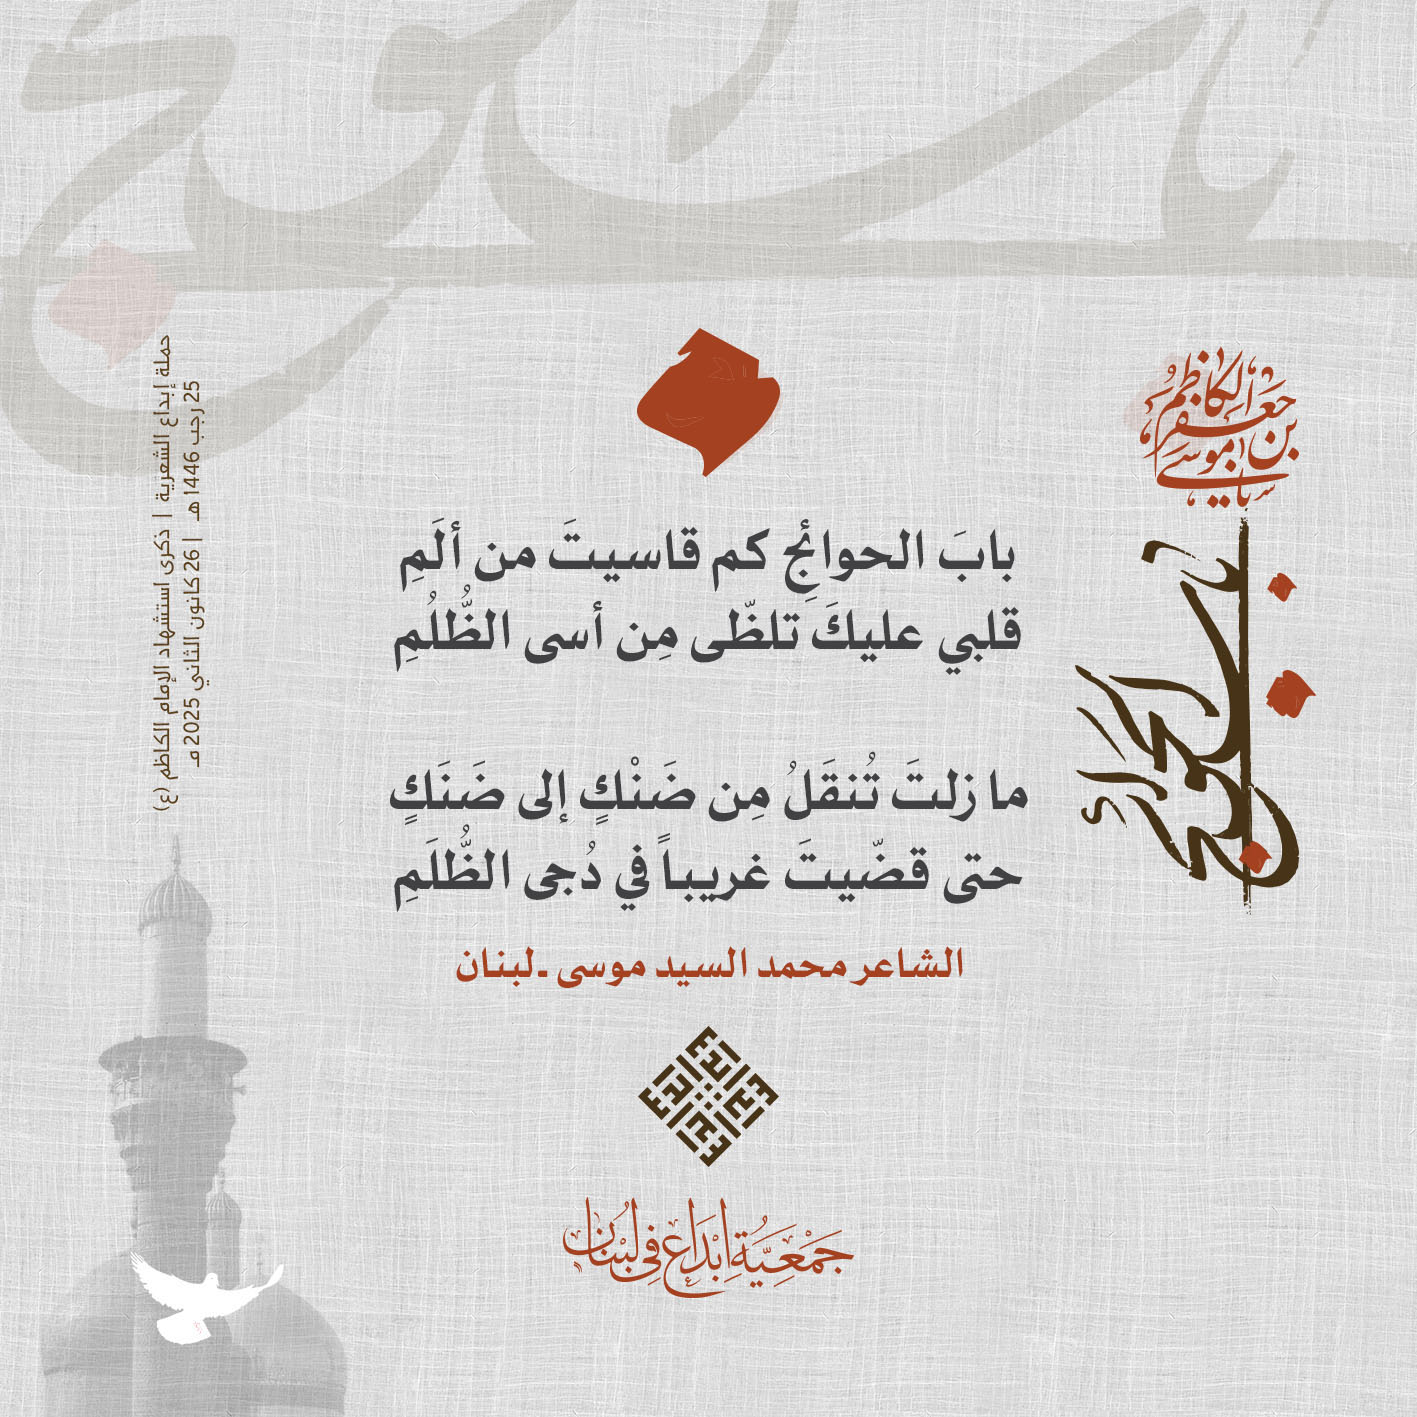 باب الحوائج
يا موسى بن جعفر الكاظم
باب الحوائج
بابَ الحوائجِ كم قاسيتَ من ألَمِ
قلبي عليكَ تلظّى مِن أسى الظُّلُمِ
ما زلتَ تُنقَلُ مِن ضَنْكٍ إلى ضَنَكٍ
حتى قضّيتَ غريباً في دُجى الظُّلَمِ
الشاعر محمد السيد موسى ـ لبنان
حملة إبداع الشعرية | ذكرى استشهاد الإمام الكاظم (ع)
25 رجب 1446 هـ | 26 كانون الثاني 2025 مـ
جَمْعِيَّةُ إِبْدَاع فِي لُبْنَان